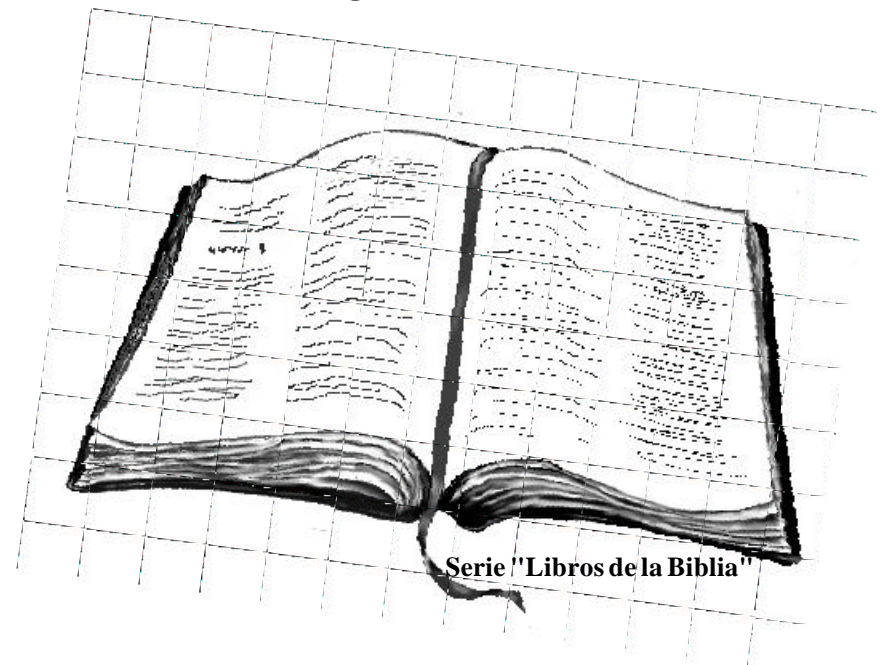 Serie "Libros de la Biblia"